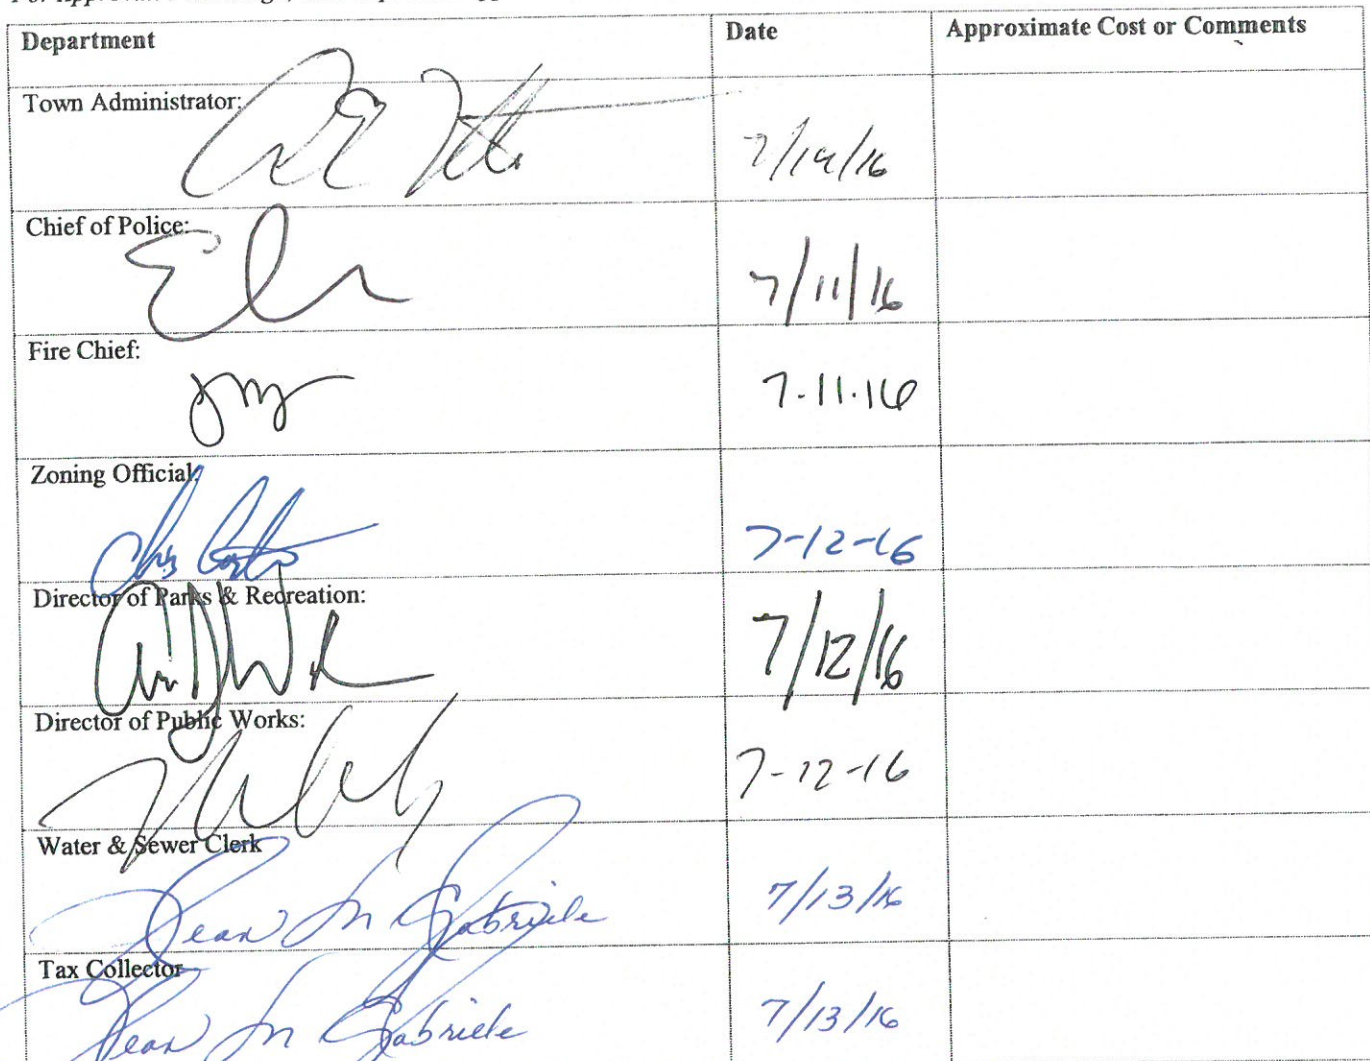 For
Department Date Approximate Cost or Comments
Town Administrator:
7/19/16
Chief of Police:
7/11/16
Fire Chief:
7.11.16
Zoning Official:
7-12-16
Director of Parks & Recreation:
7/12/16
Director of Public Works:
7-12-16
Water & Sewer Clerk
Jean M Gabriele 7/13/16
Tax Collector
Jean M Gabriele 7/13/16